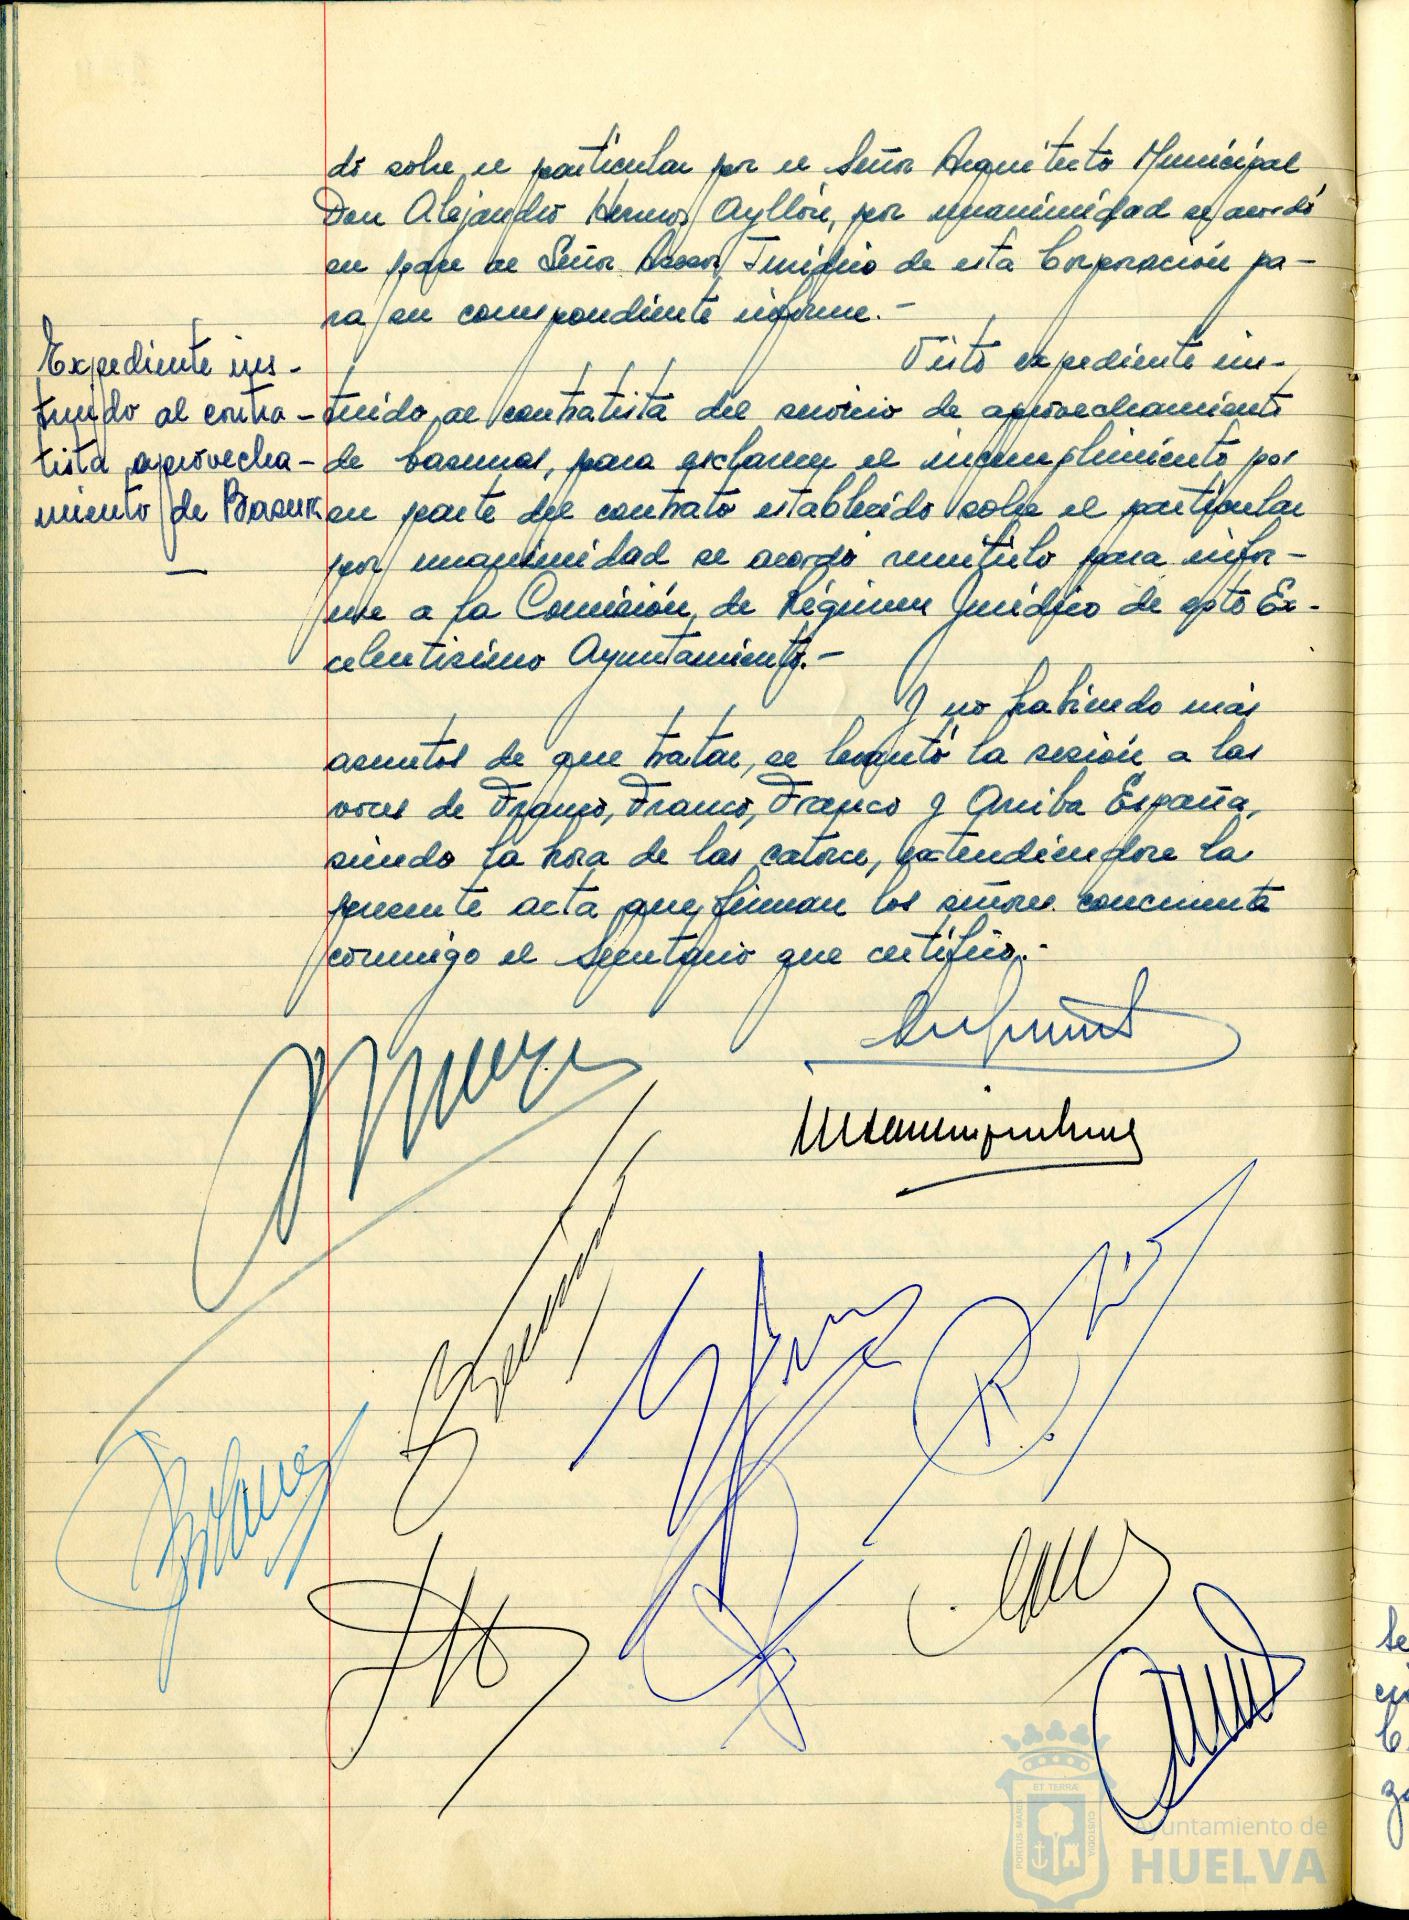 do sobre el particular por el Señor Arquitecto Municipal
Don Alejandro Herrero Ayllón, por unanimidad se acordó
su pase al Señor Asesor Jurídico de esta Corporación pa-
ra su correspondiente informe.-
Expediente ins-
truido al contra-
tista aprovecha-
miento de Basuras
Visto expediente ins-
truido al contratista del servicio de aprovechamiento
de basuras, para esclarecer el incumplimiento por
su parte del contrato establecido sobre el particular
por unanimidad se acordó remitirlo para infor-
me a la Comisión de Régimen Jurídico de esto Ex-
celentísimo Ayuntamiento.-
Y no habiendo más
asuntos de que tratar, se levantó la sesión a las
voces de Franco, Franco, Franco y Arriba España,
siendo la hora de las catorce, extendiendose la
presente acta que firman los señores concurrente
conmigo el Secretario que certifico.-
ET TERRÆ
PORTUS MARIS
CUSTODIA
Ayuntamiento de
HUELVA